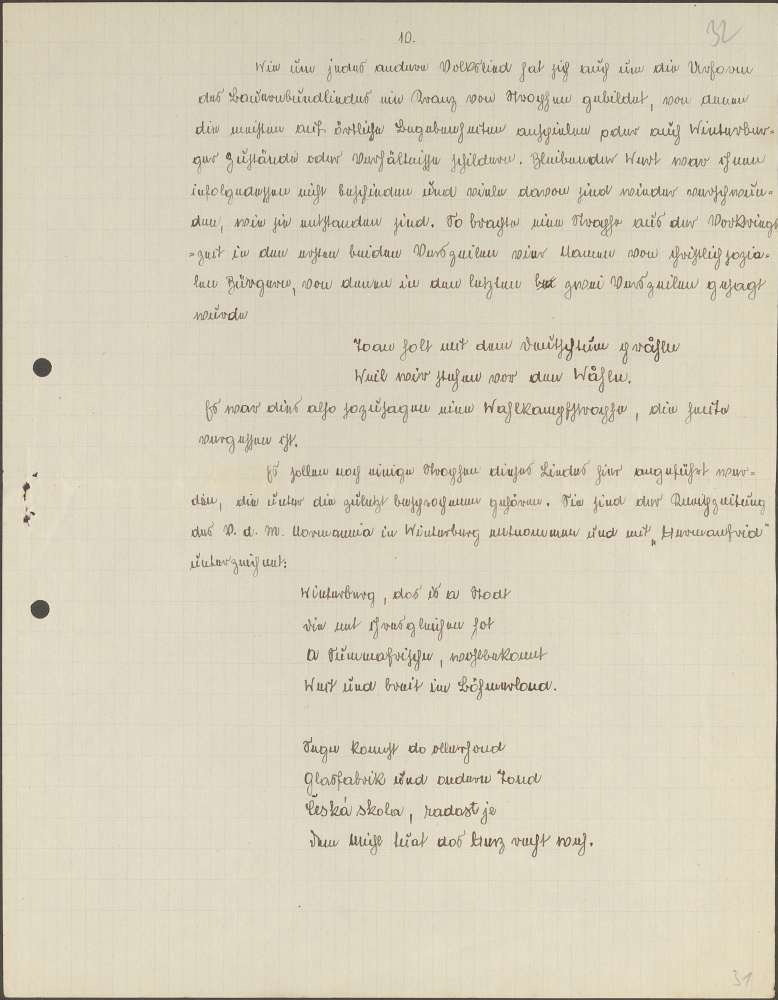 10.
32
Wie um jedes andere Volkslied hat sich auch um die Urform
des Bauernbundliedes ein Kranz von Strophen gebildet, von denen
die meisten auf örtliche Begebenheiten anspielen oder auch Winterber-
ger Zustände oder Verhältnisse schildern. Bleibender Wert war ihnen
infolgedessen nicht beschieden und viele davon sind wieder verschwun-
den, wie sie entstanden sind. So brachte eine Strophe aus der Vorkriegs
-zeit in den ersten beiden Verszeilen vier Namen von christlichsozia-
len Bürgern, von denen in den letzten zwei Verszeilen gesagt
wurde
holt mit dem Deutschtum
Weil wir stehen vor den Wåhln.
Es war dies also sozusagen eine Wahlkampfstrophe, die heute
vergessen ist.
Es sollen noch einige Strophen dieses Liedes hier angeführt wer-
den, die unter die zuletzt besprochenen gehören. Sie sind der Kneipzeitung
des V. d. M. Normannia in Winterburg entnommen und mit „Hermanfrid"
unterzeichnet:
Winterburg, das is a Stodt
Die net ihresgleichen hot
A Summafrischn, wohlbekonnt
Weit und breit im Böhmerlond.
Segn konnst do ollerhond
Glasfabrik und andern Tond
Česká skola, radost je
Dem Michl tuat das Herz recht weh.
31